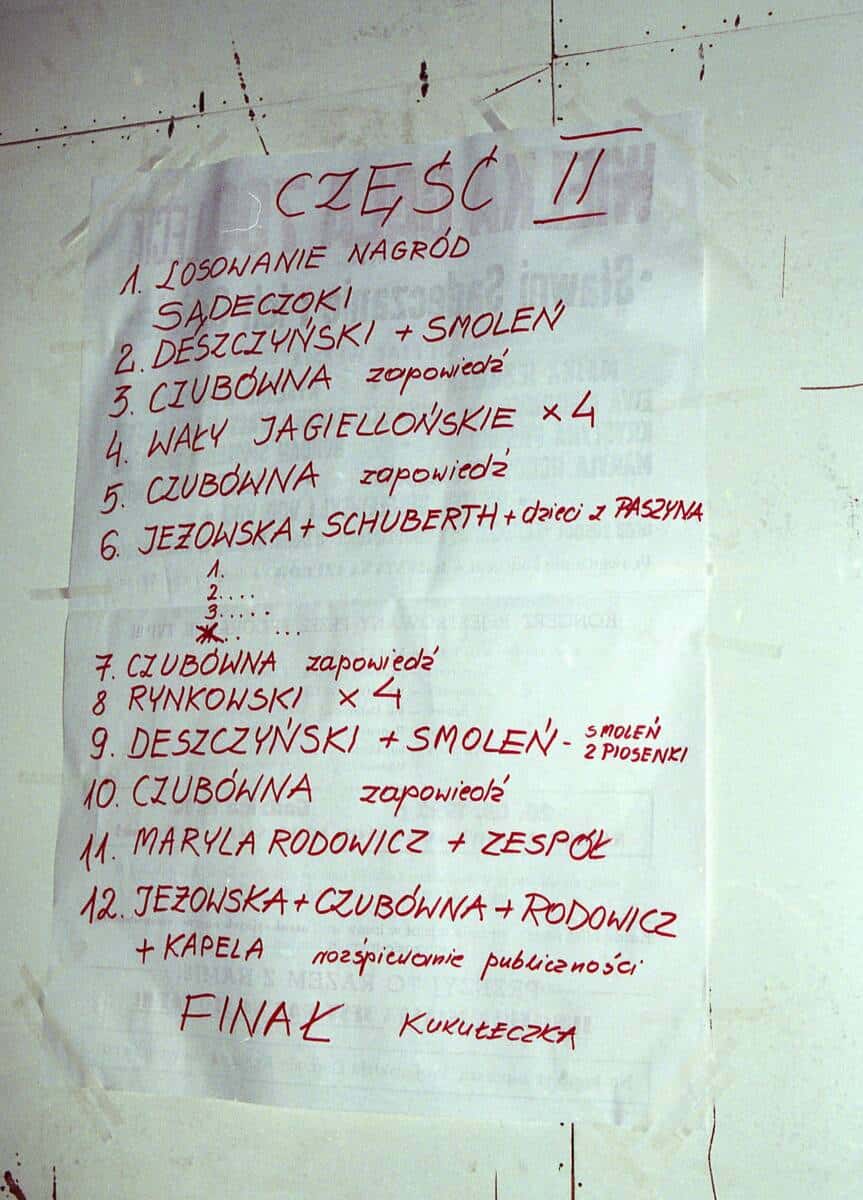 CZĘŚĆ II
1. LOSOWANIE NAGRÓD
SĄDECZOKI
2. DESZCZYŃSKI + SMOLEŃ
3. CZUBÓWNA zapowiedź
4. WAŁY JAGIELLOŃSKIE x 4
5. CZUBÓWNA zapowiedź
6. JEŻOWSKA + SCHUBERTH + dzieci z PASZYNA
1.
2....
3.....
7. CZUBÓWNA zapowiedź
8 RYNKOWSKI x 4
9. DESZCZYŃSKI + SMOLEŃ - SMOLEŃ
2 PIOSENKI
10. CZUBÓWNA zapowiedź
11. MARYLA RODOWICZ + ZESPÓŁ
12. JEŻOWSKA + CZUBÓWNA + RODOWICZ
+ KAPELA rozśpiewanie publiczności
FINAŁ KUKUŁECZKA